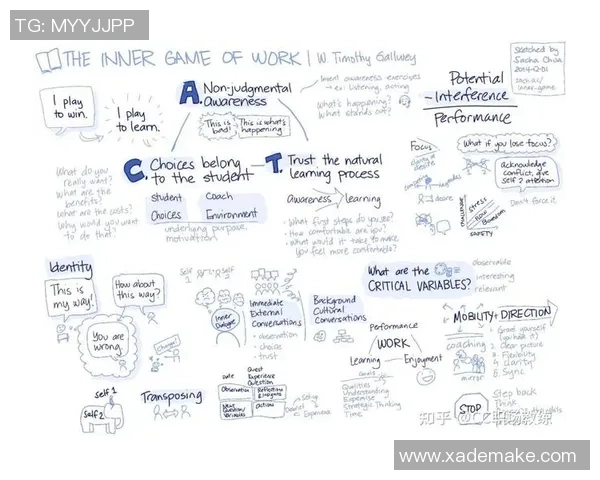 TG: MYYJJPP
THE INNER GAME OF WORK | W. Timothy Gallwey
Sketched by
Sacha Chua
2014-12-01
I play
to win.
I play
to learn.
A. Non-judgmental
awareness
This is
bad!
This is what's
happening
Invent awareness exercises
→ ex: listening, acting
What's happening?
What stands out?
Potential
- Interference
Performance
What do you
really want?
What are the
benefits?
What are the costs?
Why would you want
to do that?
C. Choices belong
to the student
Student
Choices
Coach
Environment
underlying purpose,
motivation
T. Trust the natural
learning process
awareness → learning
• What first steps do you see?
• How comfortable are you?
• What would it take to make
you feel more comfortable?
Focus
desire
What if you lose focus?
acknowledge
conflict, give
self 2 attention
Don't force it
CHALLENGE
STRESS
Flow
Boredom
SAFETY
Identity
This is
my way!
How about
this way?
You are
wrong.
Change!
Self 1
Self 2
Inner
Dialogue
Immediate
External
Conversations
• observation
• choice
• trust
Background
Cultural
Conversations
What are the
CRITICAL VARIABLES?
observable
interesting
relevant
Performance
WORK
Learning
Enjoyment
Goals
Qualities
Understanding
Expertise
Strategic Thinking
Time
MOBILITY + DIRECTION
coaching
mirror
2. Clear picture
3. Flexibility
4. Clarity
5. Sync
Self 1
Self 2
Transposing
Quest
Experience
Question
Observations
Reflections
& Insights
Next
Question/
Variables
Actions
Setup
Debrief
Experience
STOP
Step back
Think
知乎 @CC职场教练
www.xademake.com